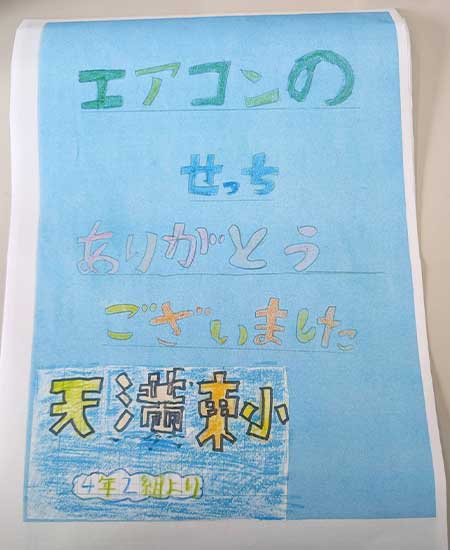 エアコンの
せっち
ありがとう
ございました
天満東小
4年2組より